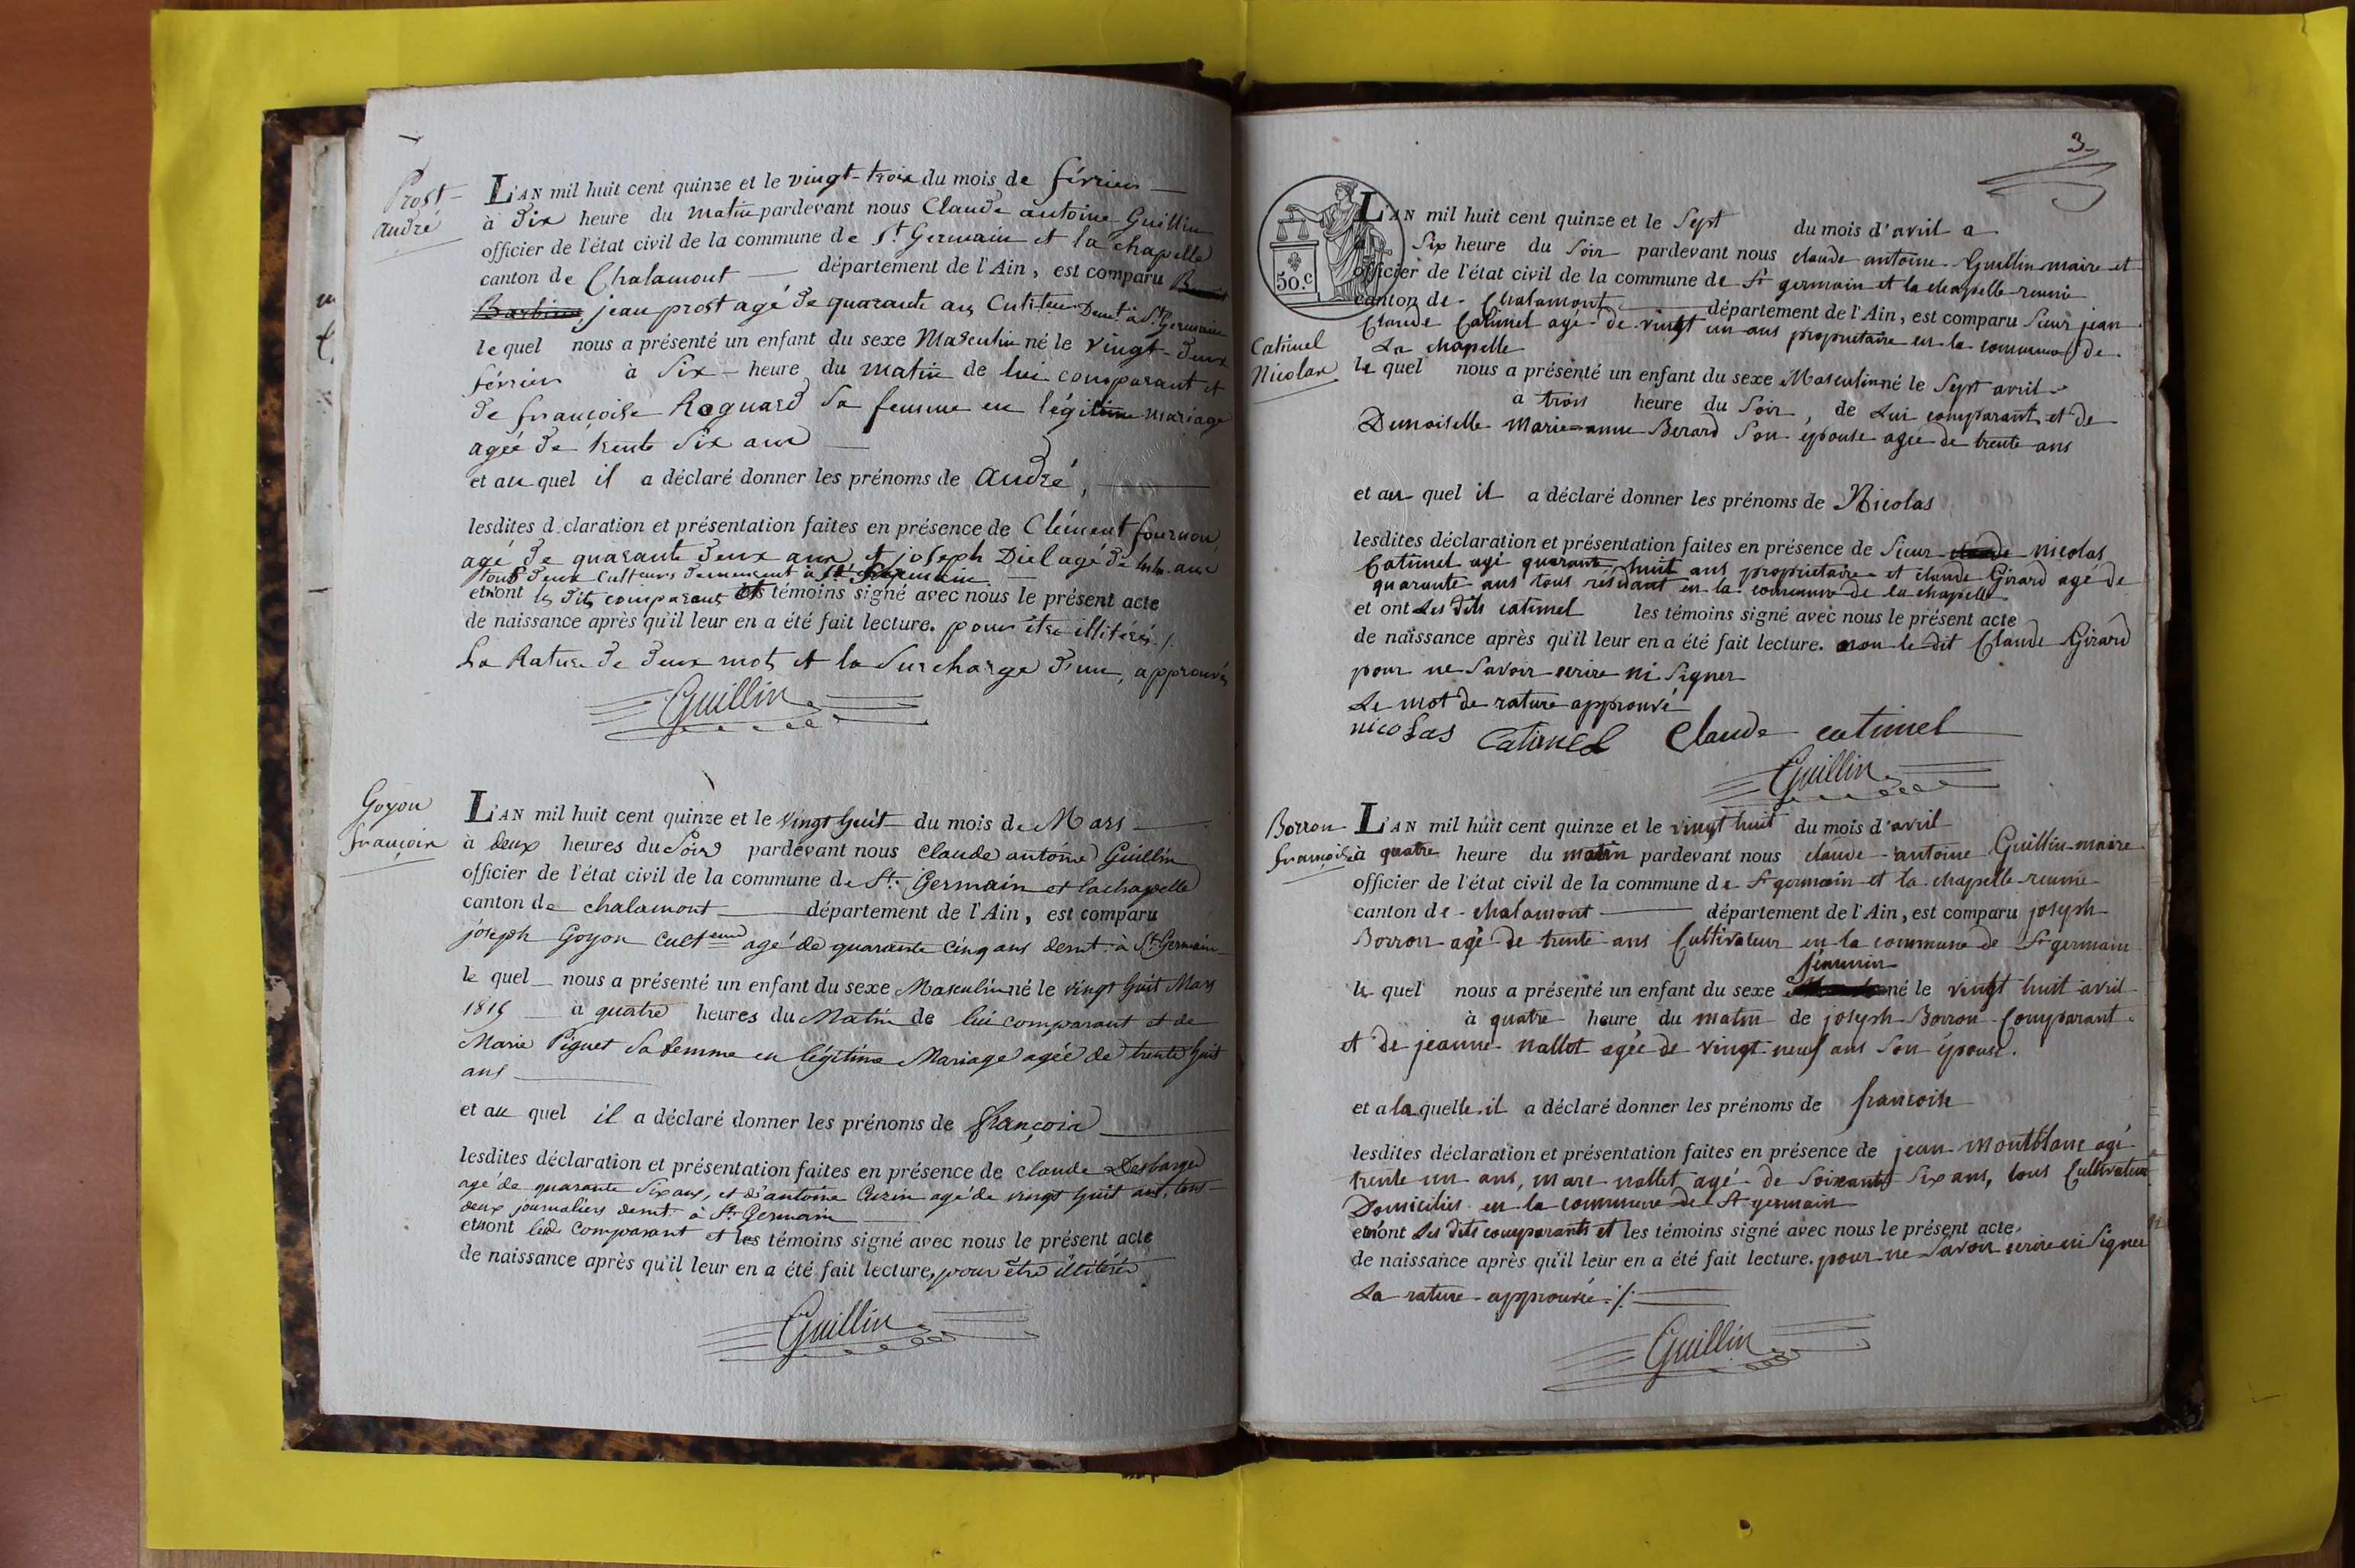 Prost
andré
L'AN mil huit cent quinze et le vingt-trois du mois de février
à Dix heure du matin pardevant nous Claude antoine Guillin
officier de l'état civil de la commune de St Germain et la chapelle
canton de Chalamont département de l'Ain, est comparu
jean prost agé de quarante ans Cultiteur Demt à St Germain
le quel nous a présenté un enfant du sexe Masculin né le vingt-deux
février à Six heure du matin de lui comparant et
de françoise Roguard Sa femme en légitime mariage
agée de trente Six ans
et au quel il a déclaré donner les prénoms de André,
lesdites déclaration et présentation faites en présence de Clément fournon
agé de quarante deux ans et joseph Diel agé de ans
tous deux Cultteurs demeurant à St Germain
et n'ont les dits comparant et les témoins signé avec nous le présent acte
de naissance après qu'il leur en a été fait lecture. pour être illitérés ./.
La Rature de deux mots et la Surcharge d'un, approuvés
Guillin
Goyon
françois
L'AN mil huit cent quinze et le vingt huit du mois de Mars
à deux heures du Soir pardevant nous Claude antoine Guillin
officier de l'état civil de la commune de St. Germain et lachapelle
canton de chalamont département de l'Ain, est comparu
joseph Goyon Culteur agé de quarante cinq ans demt. à St Germain
le quel nous a présenté un enfant du sexe Masculin né le vingt huit Mars
1815 à quatre heures du Matin de lui comparant et de
Marie Piguet Sa femme en légitime Mariage agée de trente huit
ans
et au quel il a déclaré donner les prénoms de françois
lesdites déclaration et présentation faites en présence de claude Desfarges
agé de quarante Six ans, et d'antoine Curin agé de vingt huit ans, tous
deux journaliers demt. à St. Germain
et n'ont led. comparant et les témoins signé avec nous le présent acte
de naissance après qu'il leur en a été fait lecture, pour être illitérés
Guillin
3
50.c
L'AN mil huit cent quinze et le Sept du mois d'avril a
Six heure du Soir pardevant nous claude antoine Guillin maire et
officier de l'état civil de la commune de St germain et la chapelle reunie
canton de Chalamont département de l'Ain, est comparu Sieur jean
Claude Catimel agé de vingt un ans propriétaire en la commune de
La chapelle
Catimel
Nicolas
le quel nous a présenté un enfant du sexe Masculin né le Sept avril
à trois heure du Soir, de Lui comparant et de
Demoiselle Marie-anne Berard Son épouse agée de trente ans
et au quel il a déclaré donner les prénoms de Nicolas
lesdites déclaration et présentation faites en présence de Sieur nicolas
Catimel agé quarante huit ans propriétaire et claude Girard agé de
quarante ans tous résidant en la commune de la chapelle
et ont Les dits catimel les témoins signé avec nous le présent acte
de naissance après qu'il leur en a été fait lecture. non le dit Claude Girard
pour ne Savoir ecrire ni Signer
Le mot de rature approuvé
nicolas Catimel Claude catimel
Guillin
Borron
françoise
L'AN mil huit cent quinze et le vingt huit du mois d'avril
à quatre heure du matin pardevant nous claude antoine Guillin maire
officier de l'état civil de la commune de St germain et la chapelle reunie
canton de chalamont département de l'Ain, est comparu joseph
Borron agé de trente ans Cultivateur en la commune de St germain
féminin
le quel nous a présenté un enfant du sexe né le vingt huit avril
à quatre heure du matin de joseph Borron Comparant
et de jeanne nallet agée de vingt neuf ans Son épouse.
et a la quelle il a déclaré donner les prénoms de françoise
lesdites déclaration et présentation faites en présence de jean montblanc agé
trente un ans, marc nallet agé de Soixante Six ans, tous Cultivateur
Domiciliés en la commune de St germain
et n'ont Les dits comparants et les témoins signé avec nous le présent acte
de naissance après qu'il leur en a été fait lecture. pour ne Savoir ecrire ni Signer
La rature approuvée ./.
Guillin